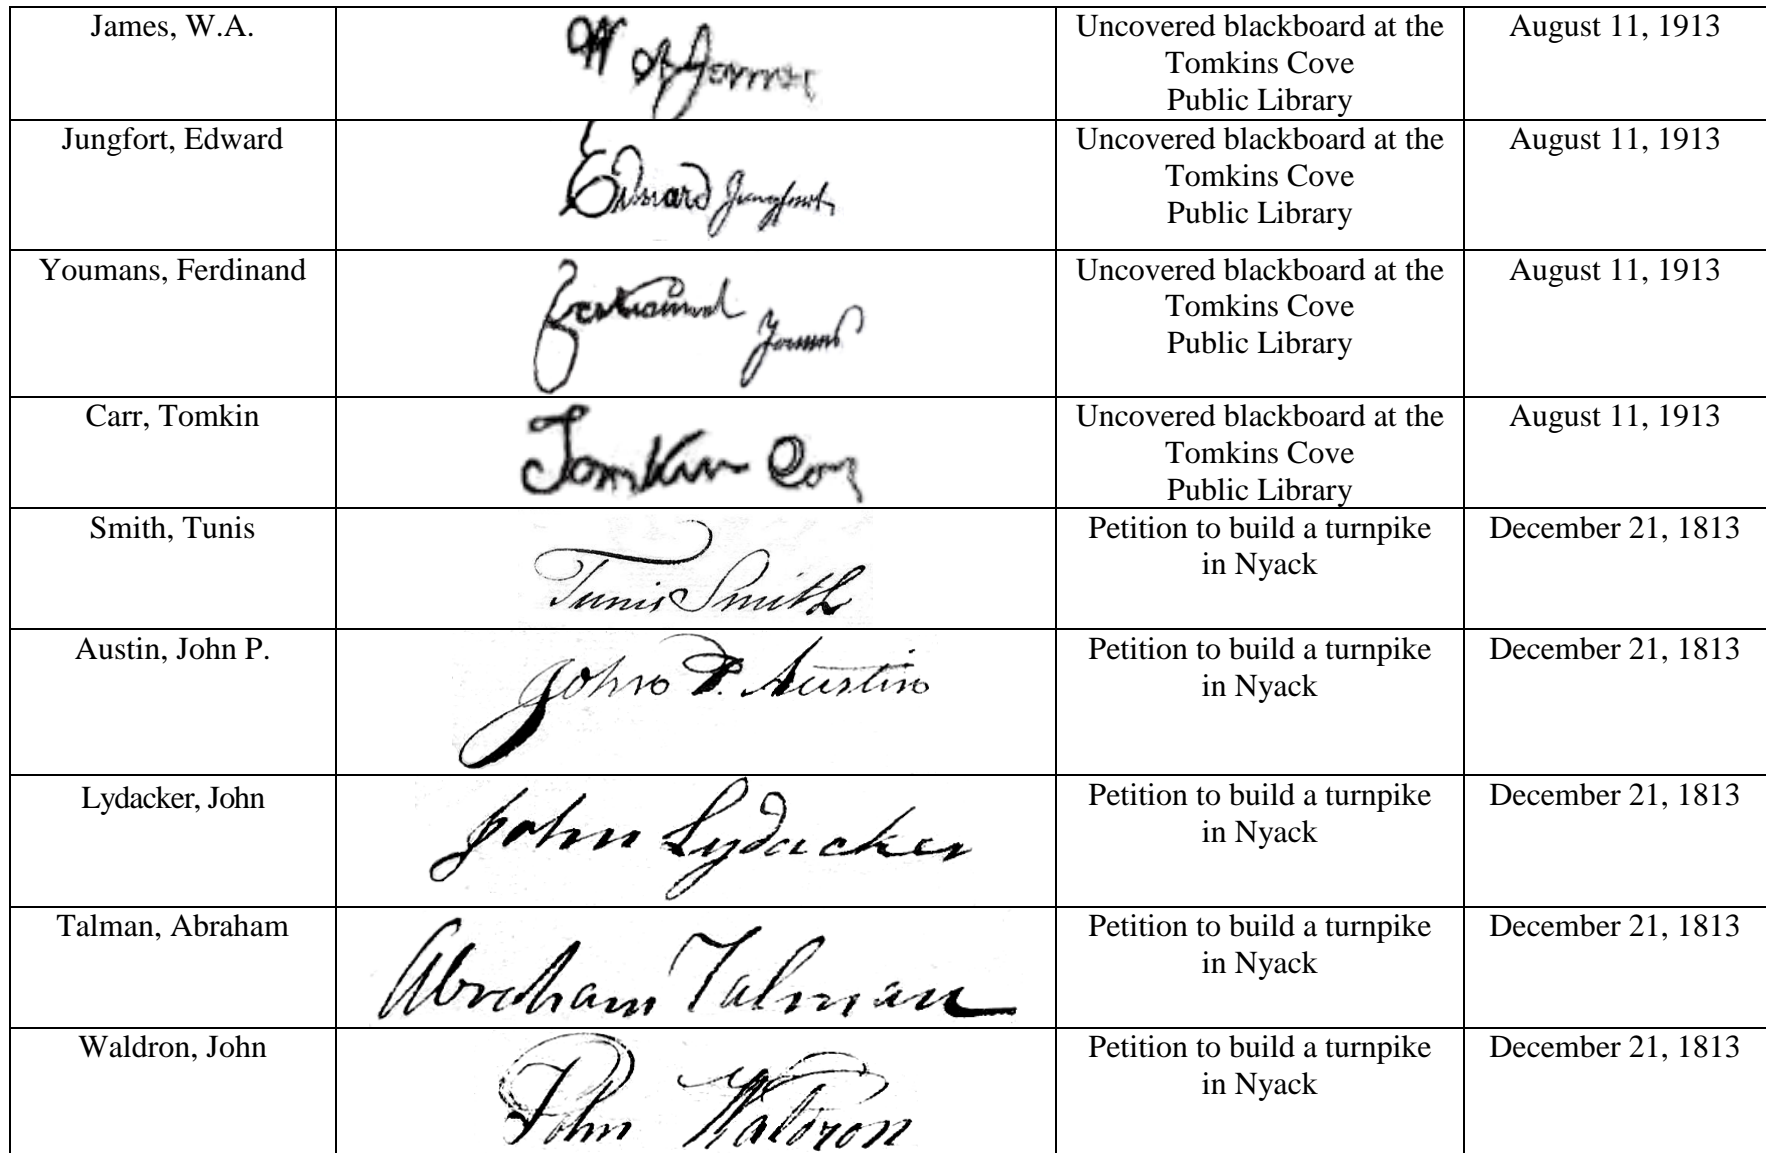 James, W.A.
W A James
Uncovered blackboard at the
Tomkins Cove
Public Library
August 11, 1913
Jungfort, Edward
Edward Jungfort
Uncovered blackboard at the
Tomkins Cove
Public Library
August 11, 1913
Youmans, Ferdinand
Ferdinand Youmans
Uncovered blackboard at the
Tomkins Cove
Public Library
August 11, 1913
Carr, Tomkin
Tomkin Carr
Uncovered blackboard at the
Tomkins Cove
Public Library
August 11, 1913
Smith, Tunis
Tunis Smith
Petition to build a turnpike
in Nyack
December 21, 1813
Austin, John P.
John P. Austin
Petition to build a turnpike
in Nyack
December 21, 1813
Lydacker, John
John Lydacker
Petition to build a turnpike
in Nyack
December 21, 1813
Talman, Abraham
Abraham Talman
Petition to build a turnpike
in Nyack
December 21, 1813
Waldron, John
John Waldron
Petition to build a turnpike
in Nyack
December 21, 1813